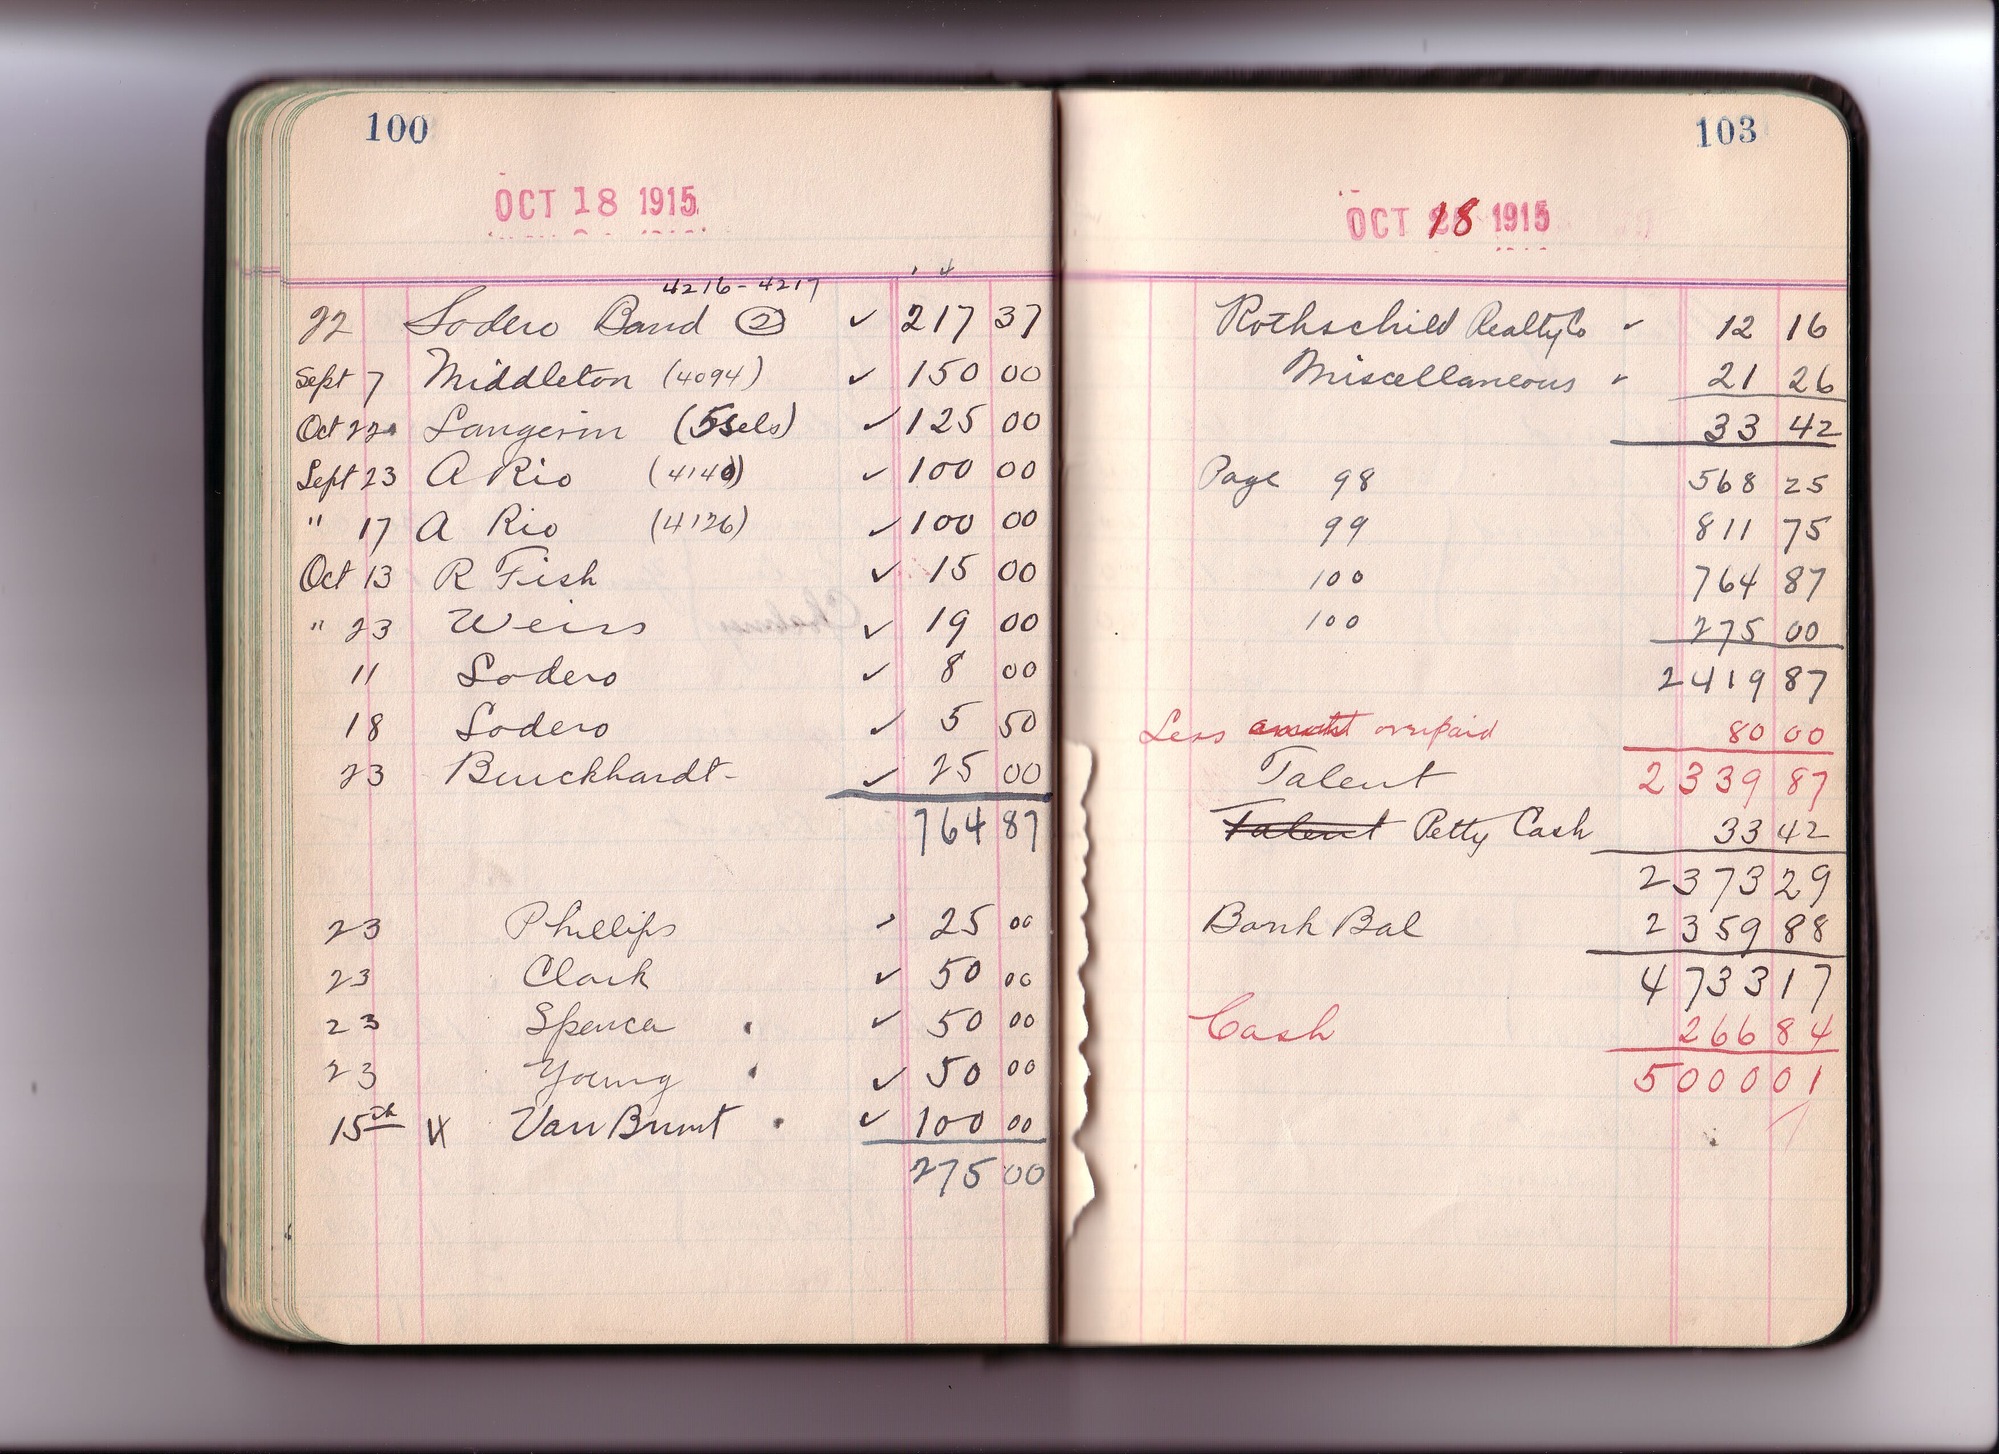 100
OCT 18 1915
4216-4217
22 Sodero Band 2 ✓ 217 37
Sept 7 Middleton (4094) ✓ 150 00
Oct 22 (5 sels) ✓ 125 00
Sept 23 A Rio (4140) ✓ 100 00
" 17 A Rio (4126) ✓ 100 00
Oct 13 R Fish ✓ 15 00
" 23 Weiss ✓ 19 00
11 Sodero ✓ 8 00
18 Sodero ✓ 5 50
23 Burckhardt ✓ 25 00
764 87
23 Phillips ✓ 25 00
23 Clark ✓ 50 00
23 Spencer ✓ 50 00
23 Young ✓ 50 00
15th Van Brunt ✓ 100 00
275 00
103
OCT 18 1915
Rothschild Realty Co ✓ 12 16
Miscellaneous ✓ 21 26
33 42
Page 98 568 25
99 811 75
100 764 87
100 275 00
2419 87
Less overpaid 80 00
Talent 2339 87
Talent Petty Cash 33 42
2373 29
Bank Bal 2359 88
4733 17
Cash 266 84
5000 01